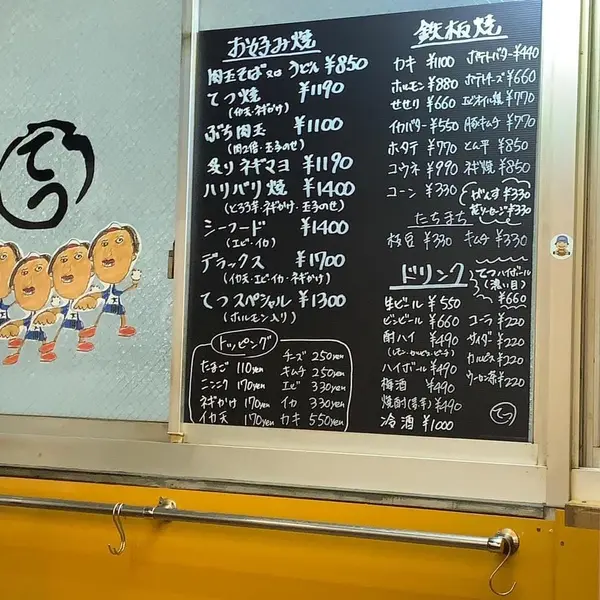 てつ
お好み焼
肉玉そば又はうどん ¥850
てつ焼 ¥1190
(イカ天・ネギかけ)
ぶち肉玉 ¥1100
(肉2倍・玉子のせ)
炙りネギマヨ ¥1190
バリバリ焼 ¥1400
(とろろ芋・ネギかけ・玉子のせ)
シーフード ¥1400
(エビ・イカ)
デラックス ¥1700
(イカ天・エビ・イカ・ネギかけ)
てつスペシャル ¥1300
(ホルモン入り)
トッピング
たまご 110yen
ニンニク 170yen
ネギかけ 170yen
イカ天 170yen
チーズ 250yen
キムチ 250yen
エビ 330yen
イカ 330yen
カキ 550yen
鉄板焼
カキ ¥1100
ホルモン ¥880
せせり ¥660
イカバター ¥550
ホタテ ¥770
コウネ ¥990
コーン ¥330
ポテトバター ¥440
ポテトチーズ ¥660
エビオイル焼 ¥770
豚キムチ ¥770
とん平 ¥850
ネギ焼 ¥850
がんす ¥330
花ソーセージ ¥330
たちまち
枝豆 ¥330 キムチ ¥330
ドリンク
生ビール ¥550
ビンビール ¥660
酎ハイ ¥490
ハイボール ¥490
梅酒 ¥490
焼酎(麦・芋) ¥490
冷酒 ¥1000
てつハイボール
(濃い目)
¥660
コーラ ¥220
サイダー ¥220
カルピス ¥220
ウーロン茶 ¥220
てつ